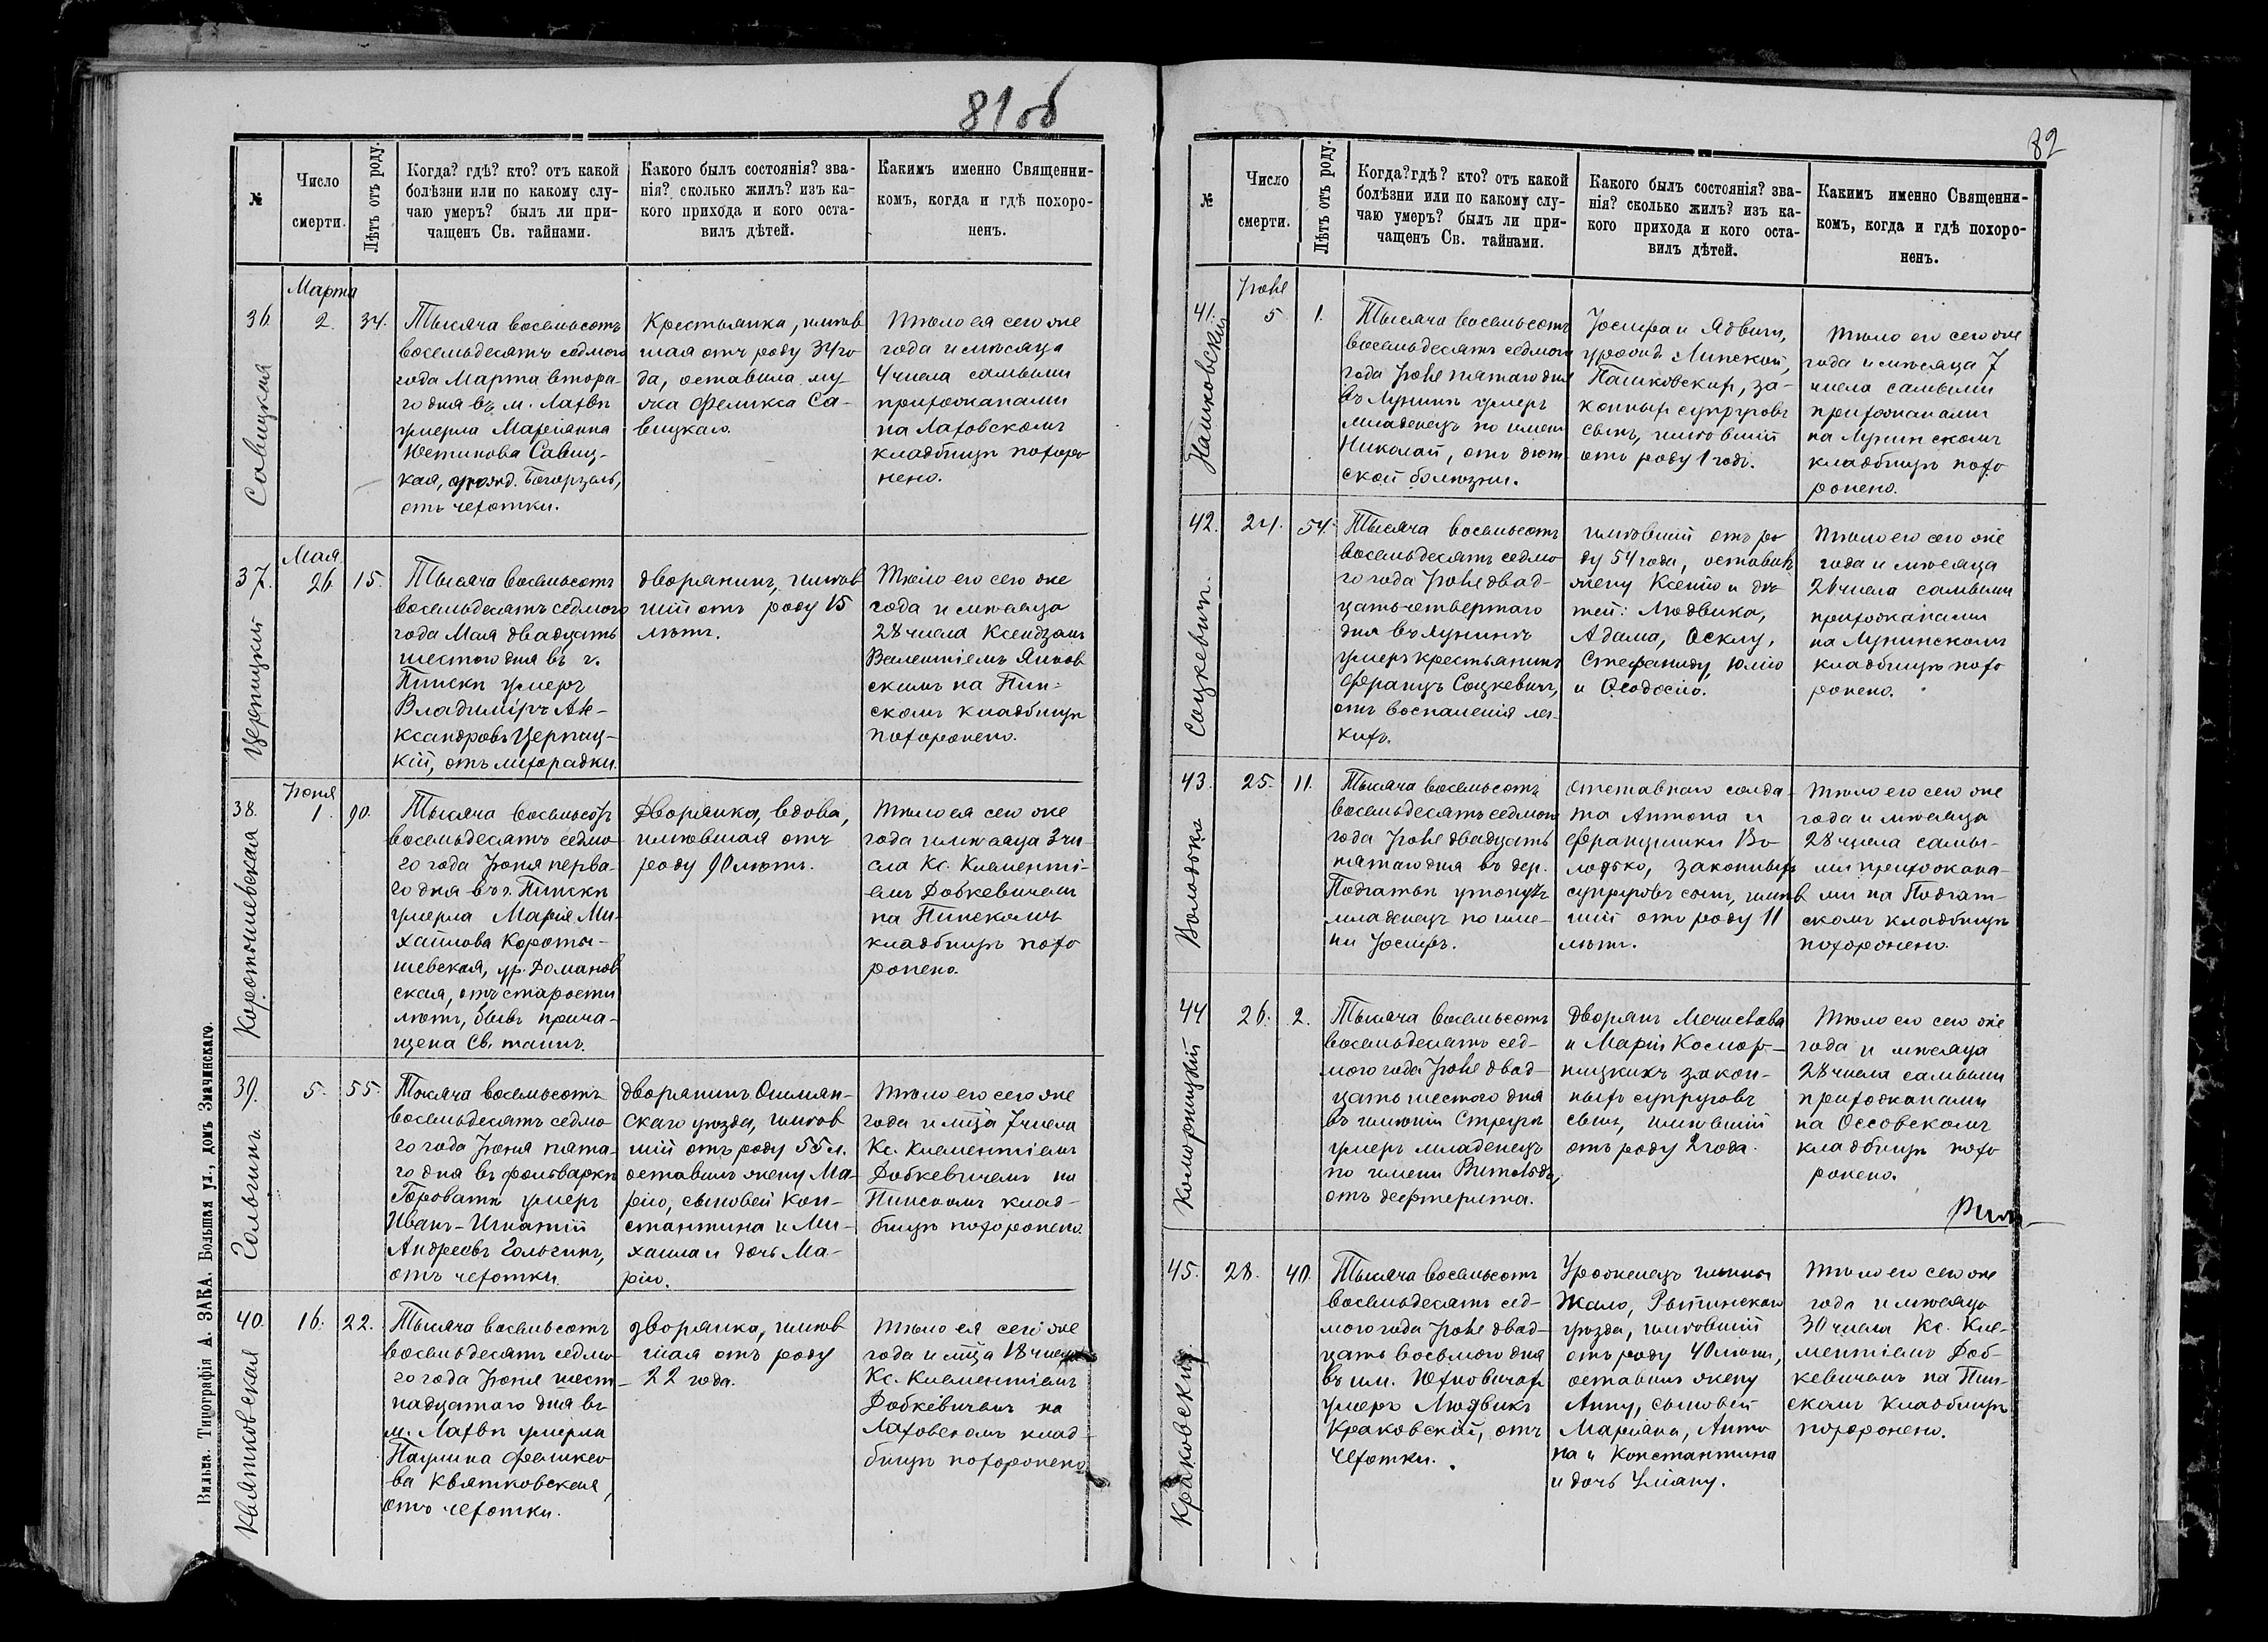 81 об
№
Число
смерти.
Лѣтъ отъ роду.
Когда? гдѣ? кто? отъ какой
болѣзни или по какому слу-
чаю умеръ? былъ ли при-
чащенъ Св. тайнами.
Какого былъ состоянія? зва-
нія? сколько жилъ? изъ ка-
кого прихода и кого оста-
вилъ дѣтей.
Какимъ именно Священни-
комъ, когда и гдѣ похоро-
ненъ.
36.
Савицкая
Марта
2.
34.
Тысяча восемьсотъ
восемьдесятъ седмого
года Марта втора-
го дня въ м. Лахвѣ
умерла Маріанна
Юстинова Савиц-
кая, урожд.
отъ чехотки.
Крестьянка, имѣв
шая отъ роду 34 го
да, оставила му-
жа Феликса Са-
вицкаго.
Тѣло ея сего же
года и мѣсяца
4 числа самыми
прихожанами
на Лаховскомъ
кладбищѣ похоро
нено.
37.
Церпицкій
Мая
26
15.
Тысяча восемьсотъ
восемьдесятъ седмого
года Мая двадцать
шестого дня въ г.
Пинскѣ умеръ
Владиміръ Але-
ксандровъ Церпиц-
кій, отъ лихорадки.
дворянинъ, имѣв
шій отъ роду 15
лѣтъ.
Тѣло его сего же
года и мѣсяца
28 числа Ксендзомъ
Валентіемъ Янков
скимъ на Пин-
скомъ кладбищѣ
похоронено.
38.
Коротышевская
Іюня
1.
90.
Тысяча восемьсотъ
восемьдесятъ седмо-
го года Іюня перва-
го дня въ г. Пинскѣ
умерла Марія Ми-
хайлова Короты-
шевская, ур. Доманов
ская, отъ старости
лѣтъ, бывъ прича-
щена Св. таинъ.
Дворянка, вдова,
имѣвшая отъ
роду 90 лѣтъ.
Тѣло ея сего же
года и мѣсяца 3 чи-
сла Кс. Клементі-
емъ Добкевичемъ
на Пинскомъ
кладбищѣ похо
ронено.
39.
Гольчинъ
5.
55.
Тысяча восемьсотъ
восемьдесятъ седмо-
го года Іюня пята-
го дня въ фольваркѣ
Гороватѣ умеръ
Иванъ-Игнатій
Андреевъ Гольчинъ,
отъ чехотки.
дворянинъ Ошмян-
скаго уѣзда, имѣв
шій отъ роду 55 л.
оставилъ жену Ма-
рію, сыновей Кон-
стантина и Ми-
хаила и дочь Ма-
рію.
Тѣло его сего же
года и мца 7 числа
Кс. Клементіемъ
Добкевичемъ на
Пинскомъ клад-
бищѣ похоронено.
40.
Квятковская
16.
22.
Тысяча восемьсотъ
восемьдесятъ седмо-
го года Іюня шест-
надцатого дня въ
м. Лахвѣ умерла
Паулина Феликсо-
ва Квятковская,
отъ чехотки.
дворянка, имѣв
шая отъ роду
22 года.
Тѣло ея сего же
года и мца 18 числа
Кс. Клементіемъ
Добкевичемъ на
Лаховскомъ клад-
бищѣ похоронено
Вильна. Типографія А. ЗАКА, Большая ул., домъ Змачинскаго.
82
№
Число
смерти.
Лѣтъ отъ роду.
Когда? гдѣ? кто? отъ какой
болѣзни или по какому слу-
чаю умеръ? былъ ли при-
чащенъ Св. тайнами.
Какого былъ состоянія? зва-
нія? сколько жилъ? изъ ка-
кого прихода и кого оста-
вилъ дѣтей.
Какимъ именно Священни-
комъ, когда и гдѣ похоро-
ненъ.
41.
Пашковскій
Іюля
5
1.
Тысяча восемьсотъ
восемьдесятъ седмого
года Іюля пятаго дня
въ Лунинѣ умеръ
младенецъ по имени
Николай, отъ дѣт-
ской болѣзни.
Іосифа и Ядвиги,
урожд. Липской,
Пашковскихъ, за-
конныхъ супруговъ
сынъ, имѣвшій
отъ роду 1 годъ.
Тѣло его сего же
года и мѣсяца 7
числа самыми
прихожанами
на Лунинскомъ
кладбищѣ похо
ронено.
42.
Сацкевичъ.
24.
54.
Тысяча восемьсотъ
восемьдесятъ седмо
го года Іюля двад-
цать четвертаго
дня въ Лунинѣ
умеръ крестьянинъ
Францъ Сацкевичъ,
отъ воспаленія лег-
кихъ.
имѣвшій отъ ро
ду 54 года, оставивъ
жену Ксенію и дѣ
тей: Людвика,
Адама, Фёклу,
Стефаниду, Юлію
и Ѳеодосію.
Тѣло его сего же
года и мѣсяца
26 числа самыми
прихожанами
на Лунинскомъ
кладбищѣ похо
ронено.
43.
Володько
25.
11.
Тысяча восемьсотъ
восемьдесятъ седмого
года Іюля двадцать
пятаго дня въ дер.
Подгатьи утонулъ
младенецъ по име-
ни Іосифъ.
отставного солда-
та Антона и
Францишки Во-
лодько, законныхъ
супруговъ сынъ, имѣв
шій отъ роду 11
лѣтъ.
Тѣло его сего же
года и мѣсяца
28 числа самы-
ми прихожана-
ми на Подгат-
скомъ кладбищѣ
похоронено.
44
Коморницкій
26.
2.
Тысяча восемьсотъ
восемьдесятъ сед-
мого года Іюля двад-
цать шестого дня
въ имѣніи Стругѣ
умеръ младенецъ
по имени Витольдъ,
отъ дефтерита.
Дворянъ Мечислава
и Маріи Комор-
ницкихъ закон-
ныхъ супруговъ
сынъ, имѣвшій
отъ роду 2 года.
Тѣло его сего же
года и мѣсяца
28 числа самыми
прихожанами
на Оссовскомъ
кладбищѣ похо
ронено.
45.
Краковскій.
28.
40.
Тысяча восемьсотъ
восемьдесятъ сед-
мого года Іюля двад-
цать восьмого дня
въ им. Юхновичахъ
умеръ Людвикъ
Краковскій, отъ
чехотки.
Уроженецъ гмины
Жало, Рыпинскаго
уѣзда, имѣвшій
отъ роду 40 лѣтъ,
оставилъ жену
Анну, сыновей
Маріана, Анто
на и Константина
и дочь Уліану.
Тѣло его сего же
года и мѣсяца
30 числа Кс. Кле-
ментіемъ Доб-
кевичемъ на Пин-
скомъ кладбищѣ
похоронено.